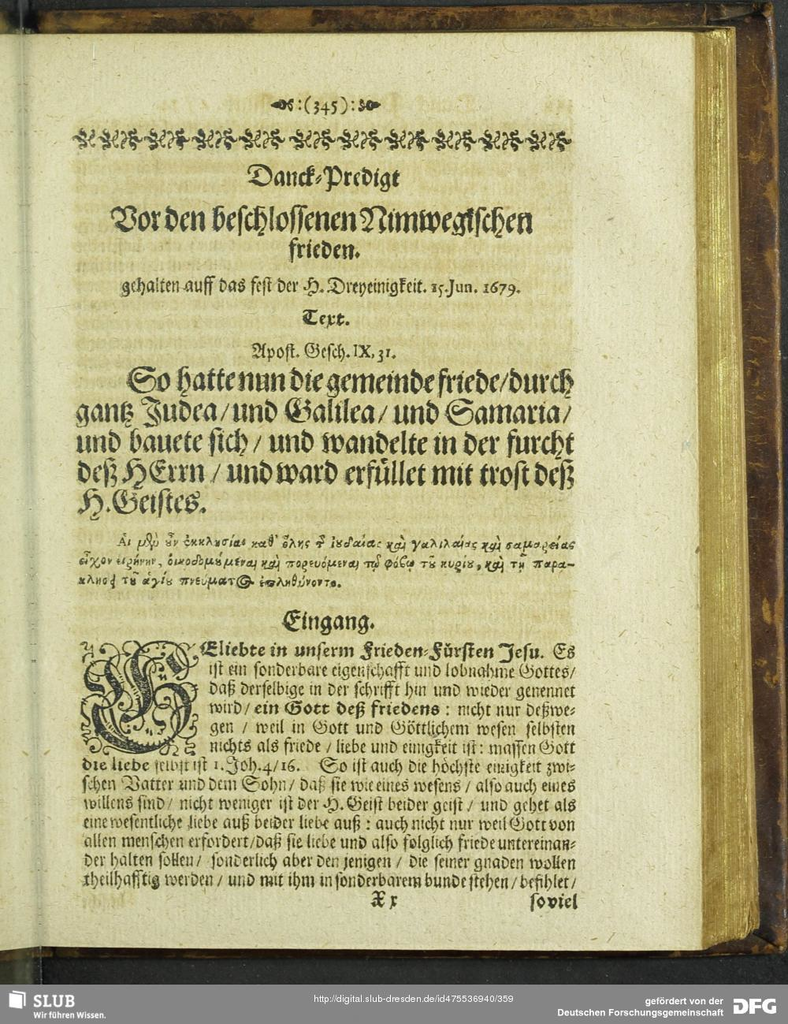 :(345):
Danck-Predigt
Vor den beschlossenen Nimwegischen
frieden.
gehalten auff das fest der H. Dreyeinigkeit. 15. Jun. 1679.
Text.
Apost. Gesch. IX, 31.
So hatte nun die gemeinde friede/durch
gantz Judea/und Galilea/und Samaria/
und bauete sich/und wandelte in der furcht
deß HErrn/und ward erfüllet mit trost deß
H. Geistes.
Αἱ μὲν ὖν ἐκκλησίαι καθ' ὅλης τ ἰυδαίας καὶ γαλιλαίας καὶ σαμαρείας
εἶχον εἰρήνην, οἰκοδομύμεναι καὶ πορευόμεναι τῷ φόβῳ τῦ κυρίυ, καὶ τῇ παρα-
κλήσει τῦ ἁγίυ πνεύματος ἐπληθύνοντο.
Eingang.
GEliebte in unserm Frieden-Fürsten Jesu. Es
ist ein sonderbare eigenschafft und lobnahme Gottes/
daß derselbige in der schrifft hin und wieder genennet
wird/ein Gott deß friedens: nicht nur deßwe-
gen/weil in Gott und Göttlichem wesen selbsten
nichts als friede/liebe und einigkeit ist: massen Gott
die liebe selbst ist 1. Joh. 4/16. So ist auch die höchste einigkeit zwi-
schen Vatter und dem Sohn/daß sie wie eines wesens/also auch eines
willens sind/nicht weniger ist der H. Geist beider geist/und gehet als
eine wesentliche liebe auß beider liebe auß: auch nicht nur weil Gott von
allen menschen erfordert/daß sie liebe und also folglich friede untereinan-
der halten sollen/sonderlich aber den jenigen/die seiner gnaden wollen
theilhafftig werden/und mit ihm in sonderbarem bunde stehen/befihlet/
Xx soviel
SLUB
Wir führen Wissen.
http://digital.slub-dresden.de/id475536940/359
gefördert von der
Deutschen Forschungsgemeinschaft
DFG